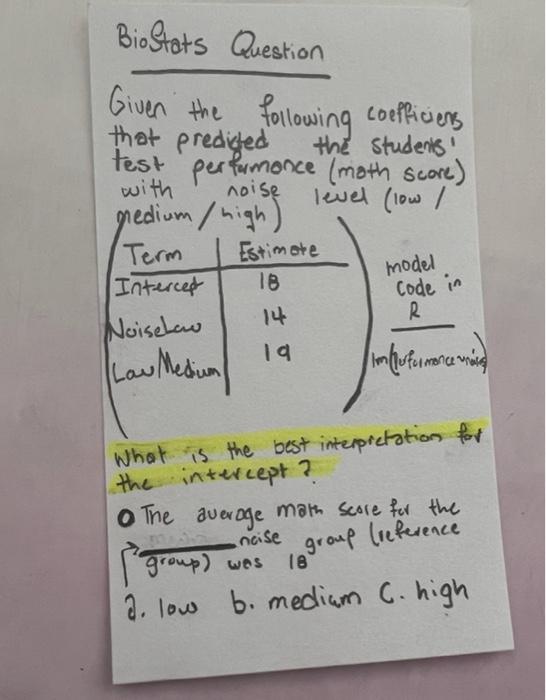 BioStats Question
Given the following coefficiens
that predicted the students'
test performance (math score)
with noise level (low /
medium / high)
Term Estimate
Intercept 18
NoiseLow 14
Low/Medium 19
model
code in
R
lm(Performance~noise)
What is the best interpretation for
the intercept?
The average math score for the
_____ noise group (reference
group) was 18
a. low b. medium c. high